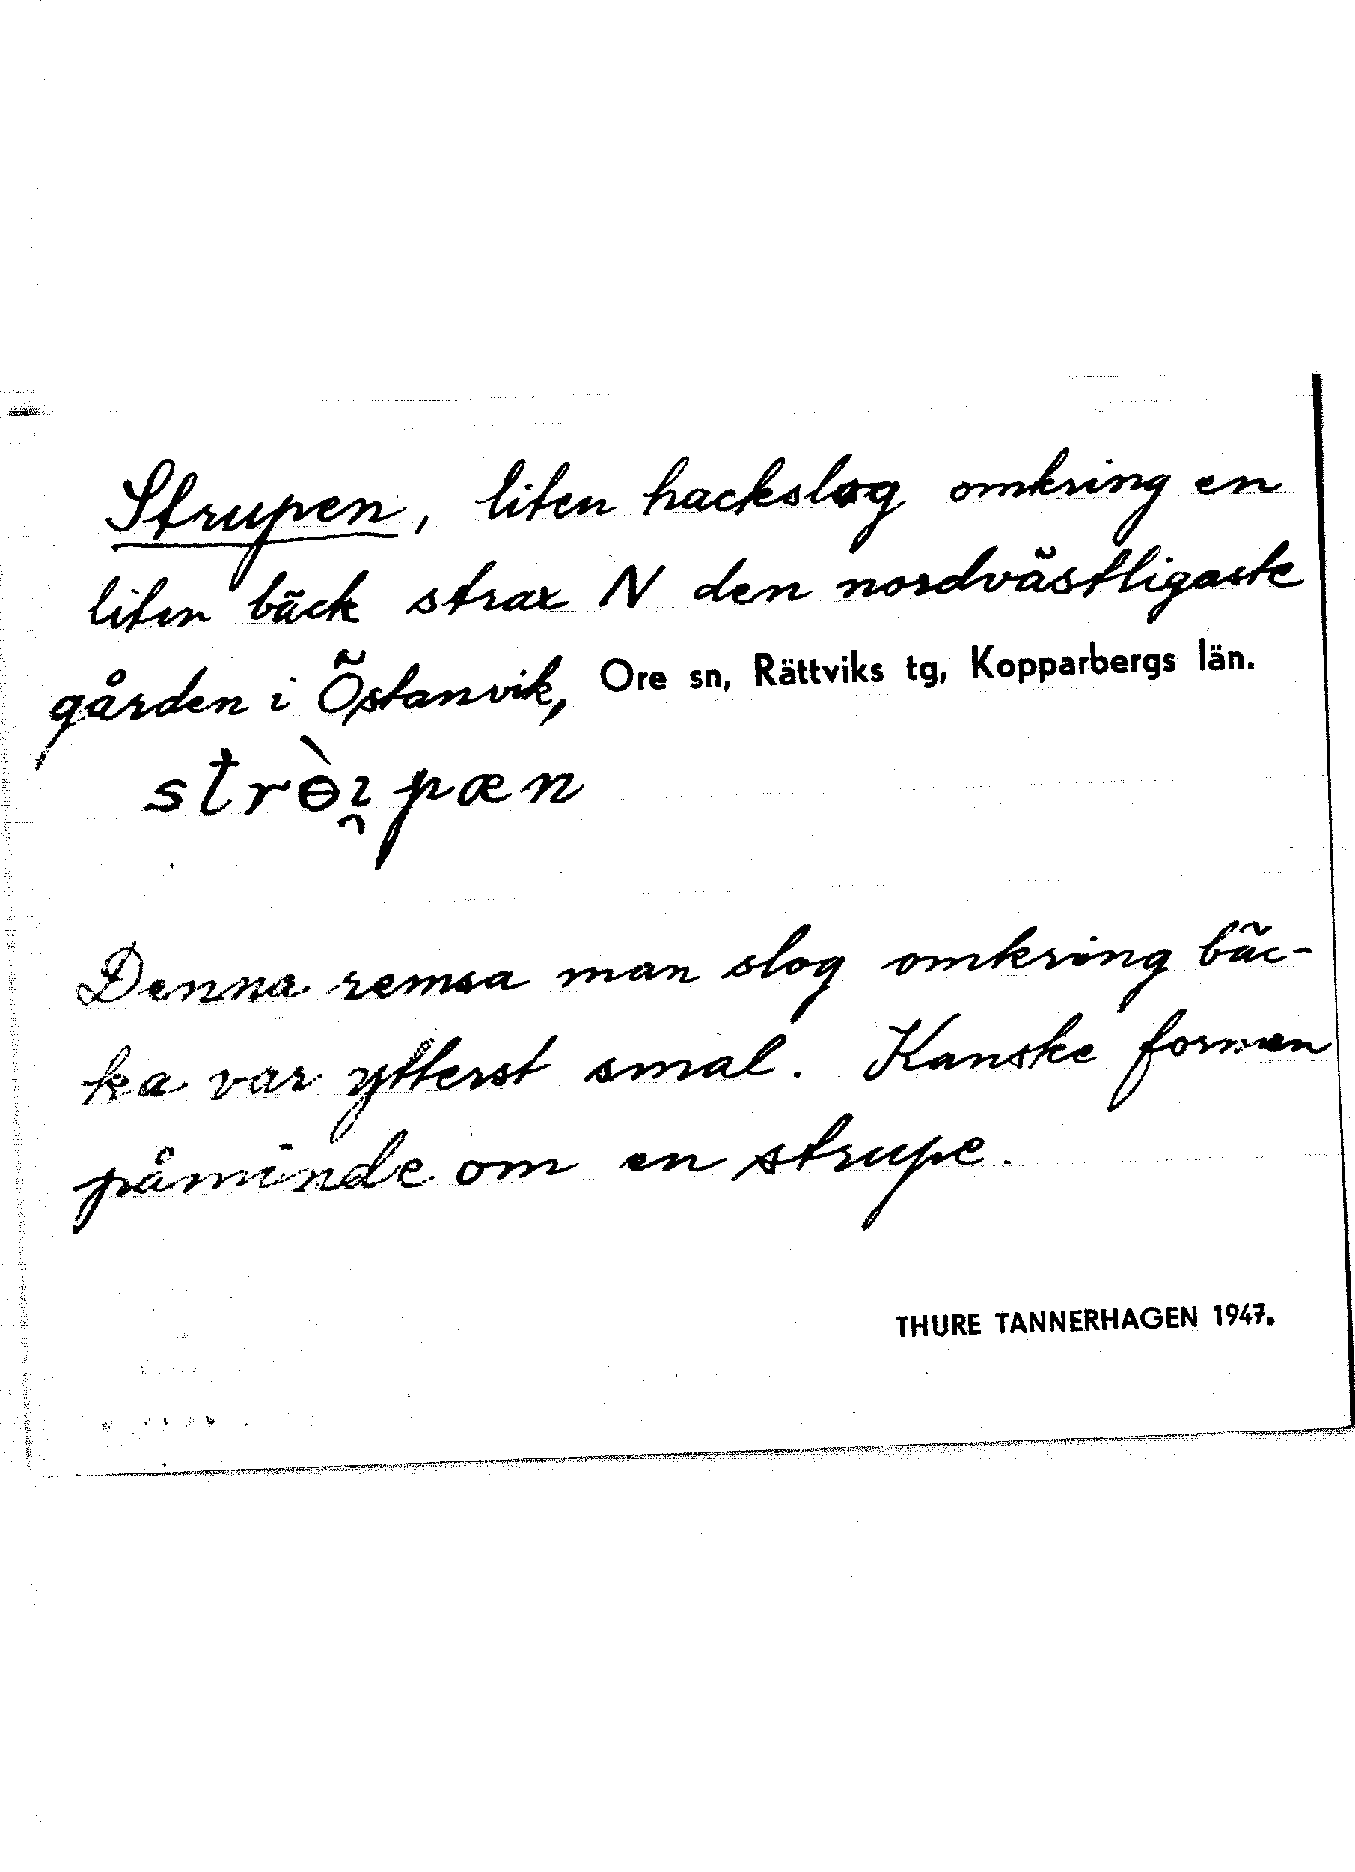 Strupen, liten hackslog omkring en
liten bäck strax N den nordvästligaste
gården i Östanvik, Ore sn, Rättviks tg, Kopparbergs län.
strө̀ı̯pæn
Denna remsa man slog omkring bäc-
ka var ytterst smal. Kanske formen
påminde om en strupe.
THURE TANNERHAGEN 1947.